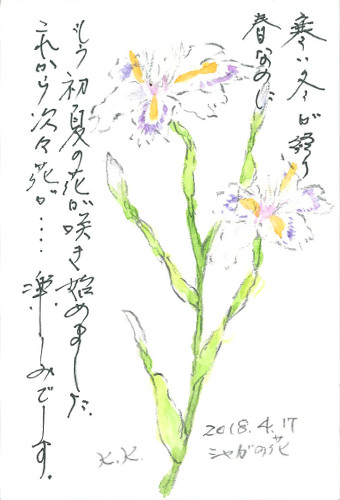 寒い冬が終り
春なのに
もう初夏の花が咲き始めました.
これから次々花が.....楽しみです.
2018.4.17
シャガの花
K.K.